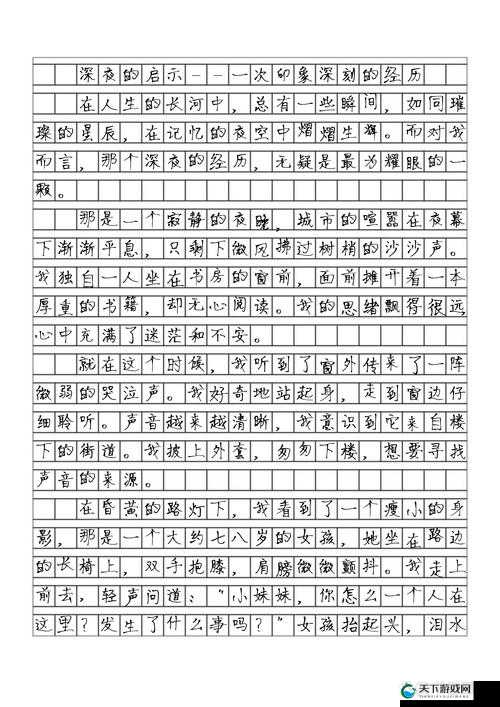 深夜的启示--一次印象深刻的经历
在人生的长河中，总有一些瞬间，如同璀
璨的星辰，在记忆的夜空中熠熠生辉。而对我
而言，那个深夜的经历，无疑是最为耀眼的一
颗。
那是一个寂静的夜晚，城市的喧嚣在夜幕
下渐渐平息，只剩下微风拂过树梢的沙沙声。
我独自一人坐在书房的窗前，面前摊开着一本
厚重的书籍，却无心阅读。我的思绪飘得很远
心中充满了迷茫和不安。
就在这个时候，我听到了窗外传来了一阵
微弱的哭泣声。我好奇地站起身，走到窗边仔
细聆听。声音越来越清晰，我意识到它来自楼
下的街道。我披上外套，匆匆下楼，想要寻找
声音的来源。
在昏黄的路灯下，我看到了一个瘦小的身
影，那是一个大约七八岁的女孩，她坐在路边
的长椅上，双手抱膝，肩膀微微颤抖。我走上
前去，轻声问道：“小妹妹，你怎么一个人在
这里？发生了什么事吗？”女孩抬起头，泪水
天下游戏网